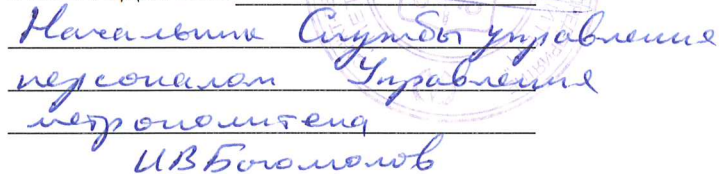 Начальник Службы управления
персоналом Управления
метрополитена
ИВБогомолов